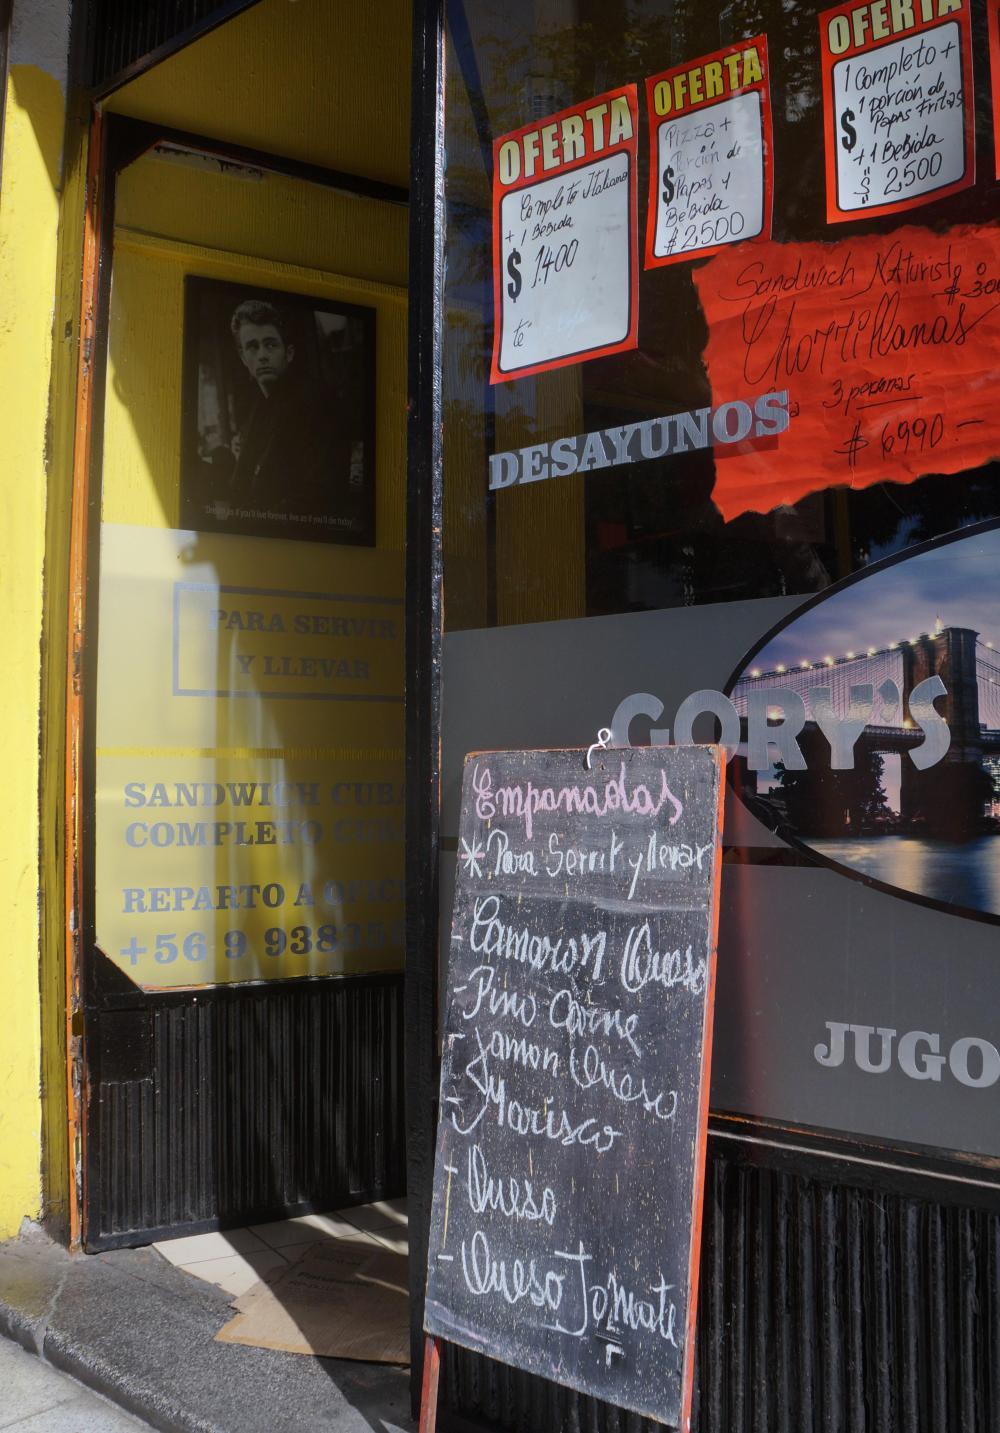 OFERTA
Completo Italiano
+ 1 Bebida
$ 1400
té
OFERTA
Pizza +
Porción de
$ Papas y
Bebida
$ 2500
OFERTA
1 Completo +
$ 1 porción de
Papas Fritas
+ 1 Bebida
$ 2500
Sandwich Naturist
Chorrillanas
3 personas
$ 6990.-
DESAYUNOS
"Dream as if you'll live forever, live as if you'll die today"
PARA SERVIR
Y LLEVAR
SANDWICH CUBA
COMPLETO CUBA
REPARTO A OFICI
+56 9 93835
GORY'S
JUGO
Empanadas
* Para Servir y llevar
- Camaron Queso
- Pino Carne
- Jamon Queso
- Marisco
- Queso
- Queso Tomate